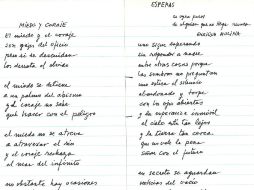 MIEDO Y CORAJE
El miedo y el coraje
son gajes del oficio
pero si se descuidan
los derrota el olvido
el miedo se detiene
a un palmo del abismo
y el coraje no sabe
qué hacer con el peligro
el miedo no se atreve
a atravesar el río
y el coraje rechaza
el mar del infinito
no obstante hay ocasiones
ESPERAS
se espera
a alguien que no llega nunca
uno sigue esperando
sin responder a nadie
entre otras cosas porque
las sombras no preguntan
uno estira el silencio
abandonado y torpe
con los ojos abiertos
y la esperanza inmóvil
el cielo está tan lejos
y la tierra tan cerca
que no vale la pena
soñar con el futuro
en secreto se aguardan
noticias del